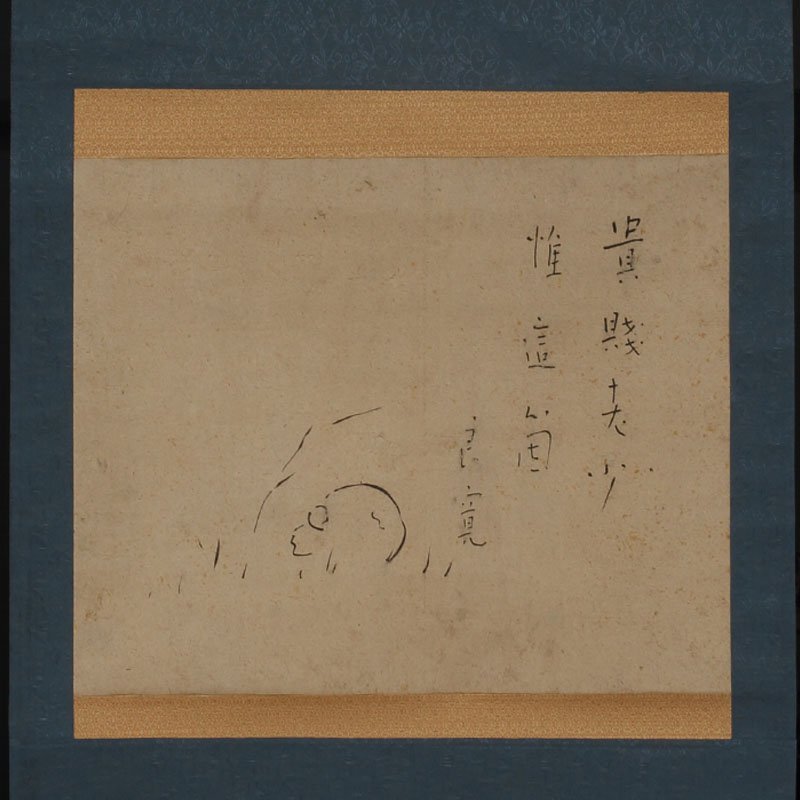 貴賤老少
惟這箇
良寛